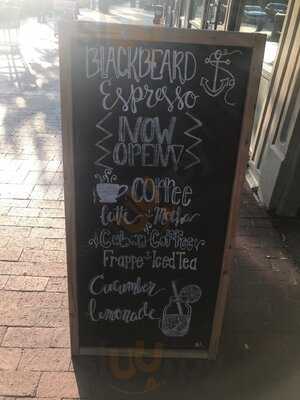 BLACKBEARD
Espresso
NOW
OPEN!
COFFEE
Latte Mocha
Cuban Coffee
Frappe Iced Tea
Cucumber
Lemonade